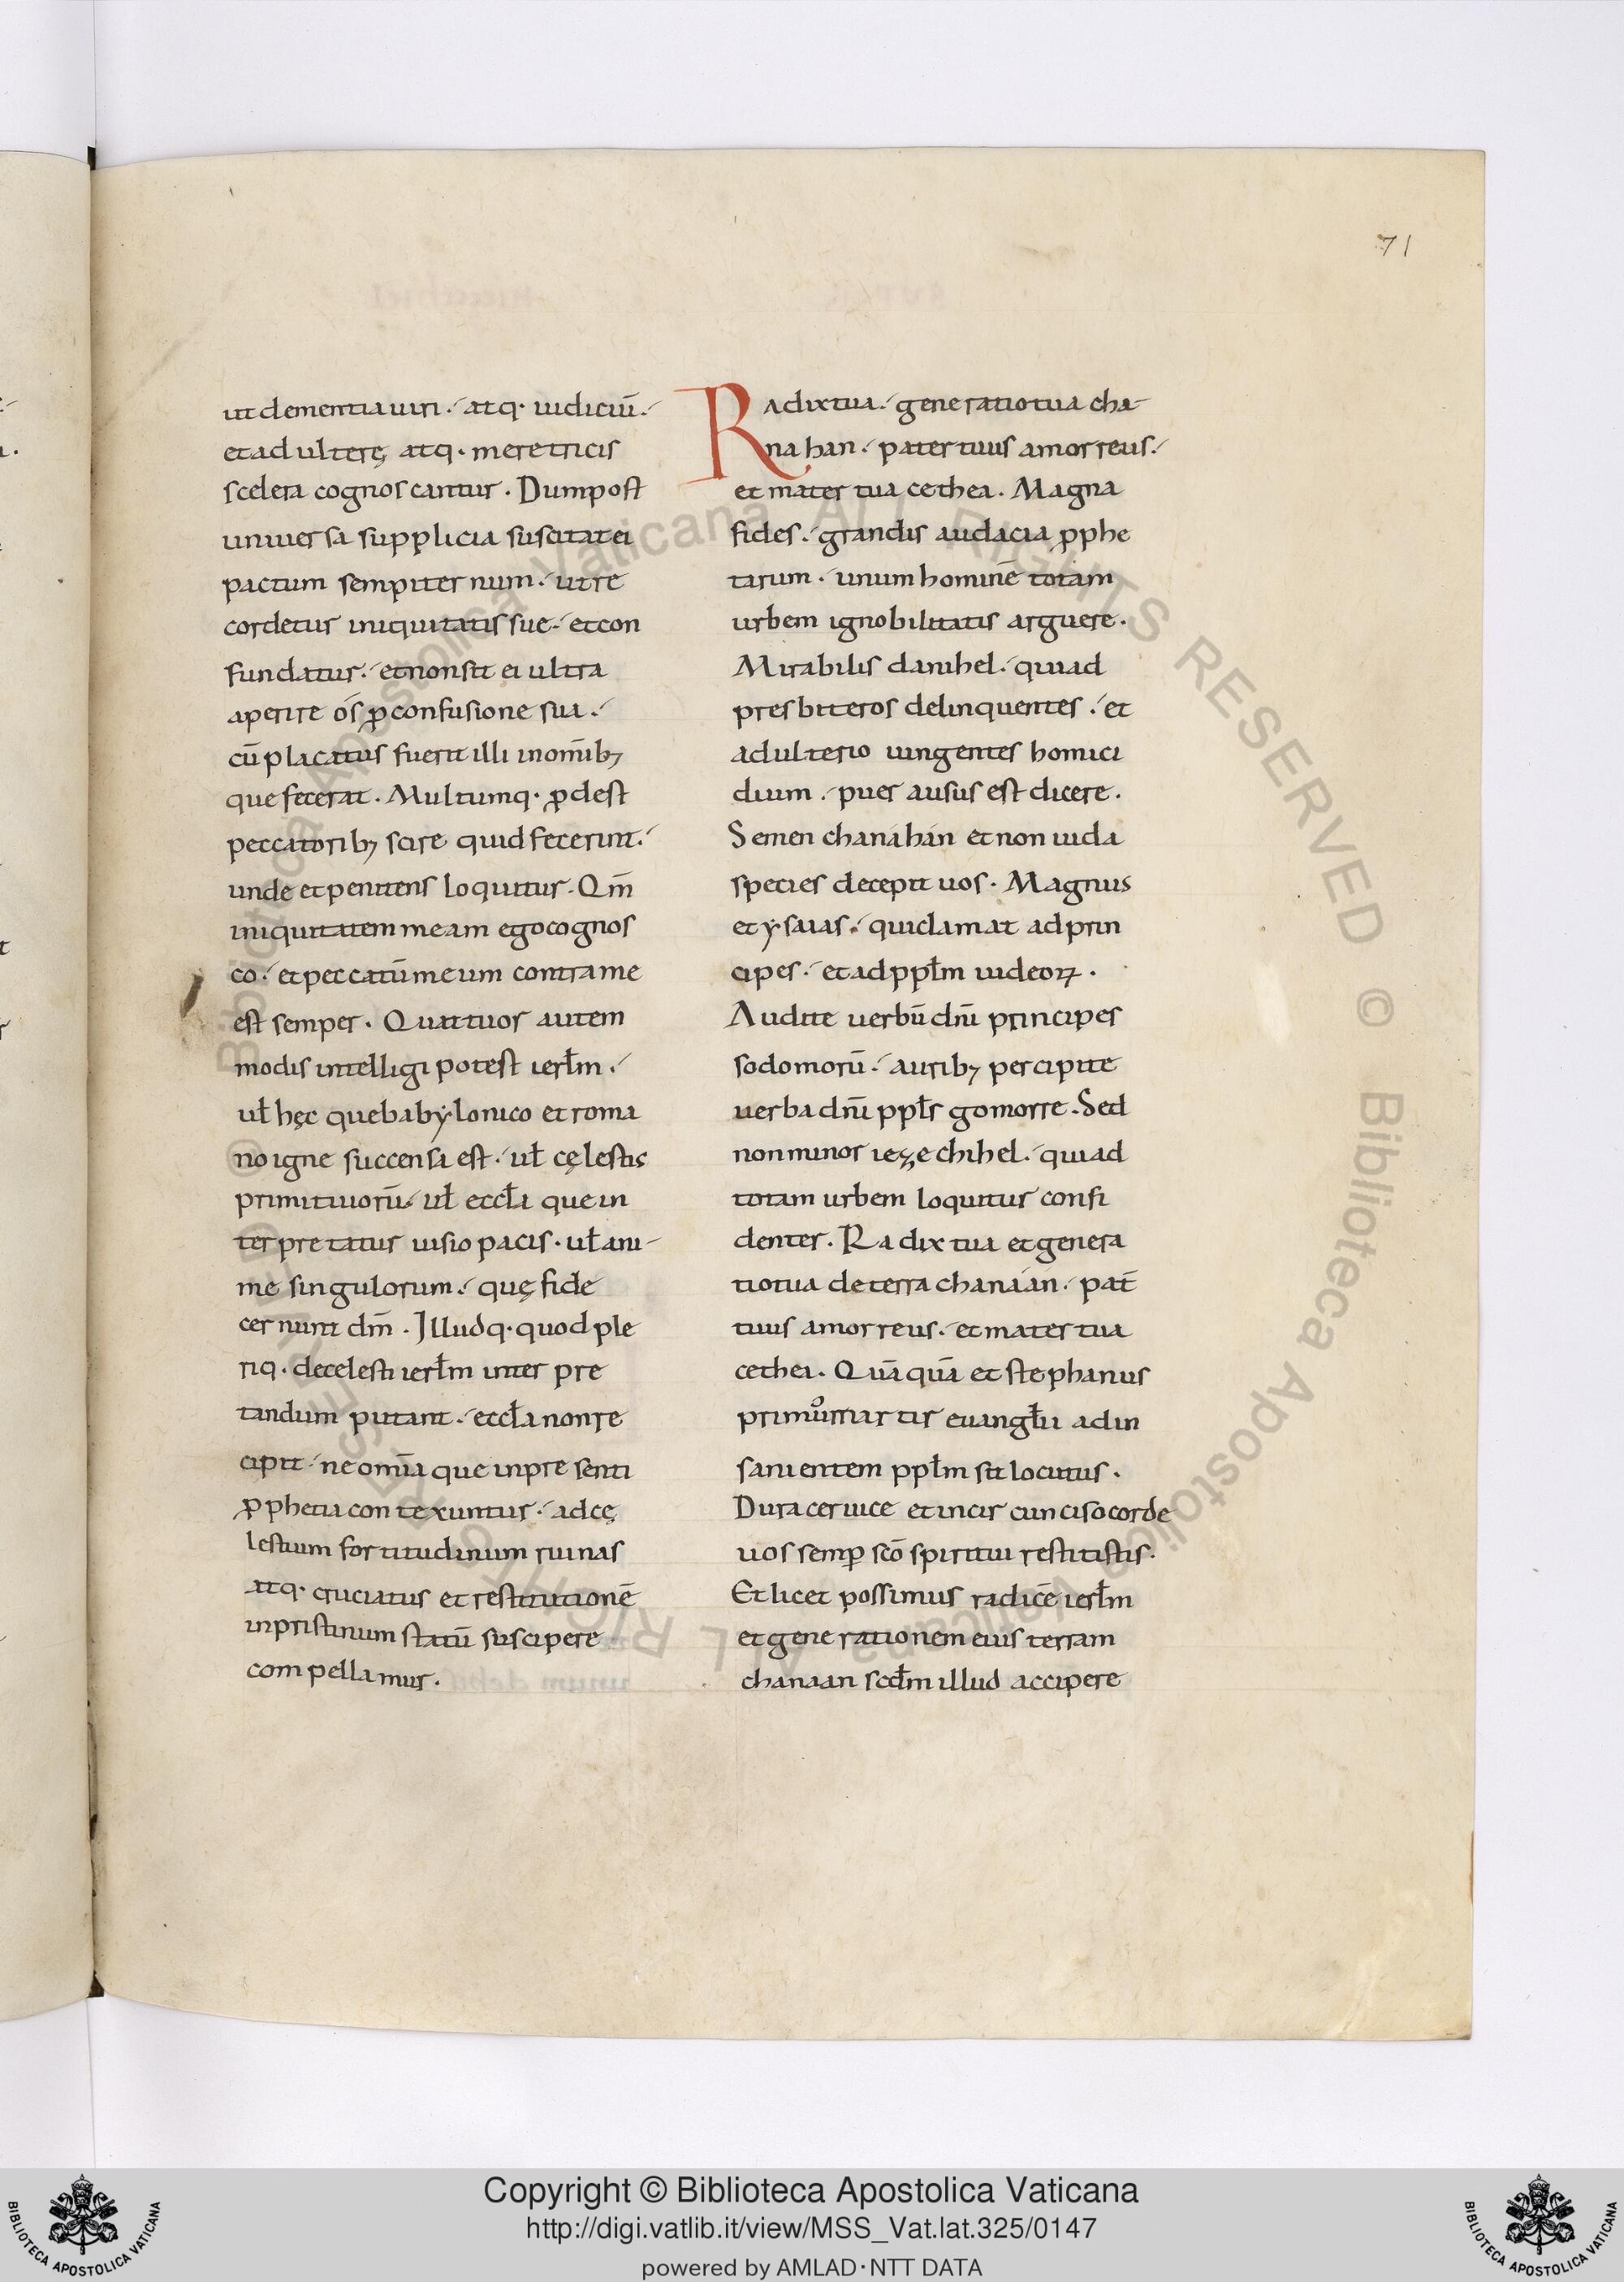 71
ut clementia uiri ./ atq· iudiciū ./
et adulterę atq· meretricis
scelera cognoscantur . Dum post
uniuersa supplicia suscitat ei
pactum sempiternum ./ ut re
cordetur iniquitatis sue ./ et con
fundatur ./ et non sit ei ultra
aperire ós p̱ confusione sua ./
cū placatus fuerit illi in om̄ib;
que fecerat . Multumq· p̱dest
peccatorib; scire quid fecerint ./
unde et penitens loquitur . Qm̄
iniquitatem meam ego cognos
co ./ et peccatū meum contra me
est semper . Quattuor autem
modis intelligi potest ierł̄m ./
uł hęc que babẏlonico et roma
no igne succensa est ./ uł cęlestis
primitiuorū ./ uł eccła que in
terpretatur uisio pacis . uł ani-
me singulorum ./ quę fide
cernunt dm̄ . Illudq· quod ple
riq· de celesti ierłm inter pre
tandum putant ./ eccła non re
cipit ./ ne om̄ia que in presenti
p̱phetia contexuntur ./ ad cę
lestium fortitudinum ruinas
atq· cruciatus et restitutionē
in pristinum statū suscipere
compellamur .
Radix tua ./ generatio tua cha-
nahan ./ pater tuus amorreus ./
et mater tua cethea . Magna
fides ./ grandis audacia p̱phe
tarum . unum hominē totam
urbem ignobilitatis arguere .
Mirabilis danihel ./ qui ad
presbiteros delinquentes ./ et
adulterio iungentes homici
dium ./ puer ausus est dicere .
Semen chanáhán et non iuda
species decepit uos . Magnus
et ẏsaias ./ qui clamat ad prin
cipes ./ et ad ppłm iudeoꝝ .
Audite uerbū dn̄i principes
sodomorū ./ aurib; percipite
uerba dn̄i ppłs gomorre . Sed
non minor iezechihel ./ qui ad
totam urbem loquitur confi
denter . Radix tua et genera
tio tua de terra chanáan ./ pat̄
tuus amorreus ./ et mater tua
cethea . Quāquā et stephanus
primus martir euangłii ad in
sanientem ppłm sit locutus .
Dura ceruice et incircunciso corde
uos semp̱ scō spiritui restitistis .
Et licet possimus radicē ierłm
et generationem eius terram
chanaan scdm̄ illud accipere
Copyright © Biblioteca Apostolica Vaticana
http://digi.vatlib.it/view/MSS_Vat.lat.325/0147
powered by AMLAD·NTT DATA